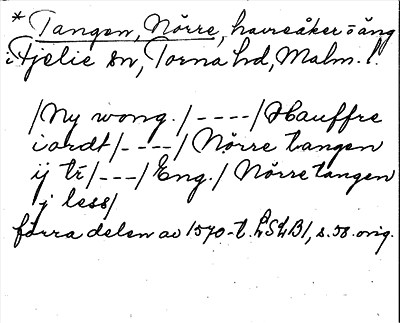 * Tangen, Nörre, havreåker o äng
i Fjelie sn, Torna hd, Malm. l.
/Ny wong./----/Hauffre
iordt/----/Nörre tangen
ij tr/---/Eng./Nörre tangen
j less/
förra delen av 1570-t. LSLB1, s. 58. orig.